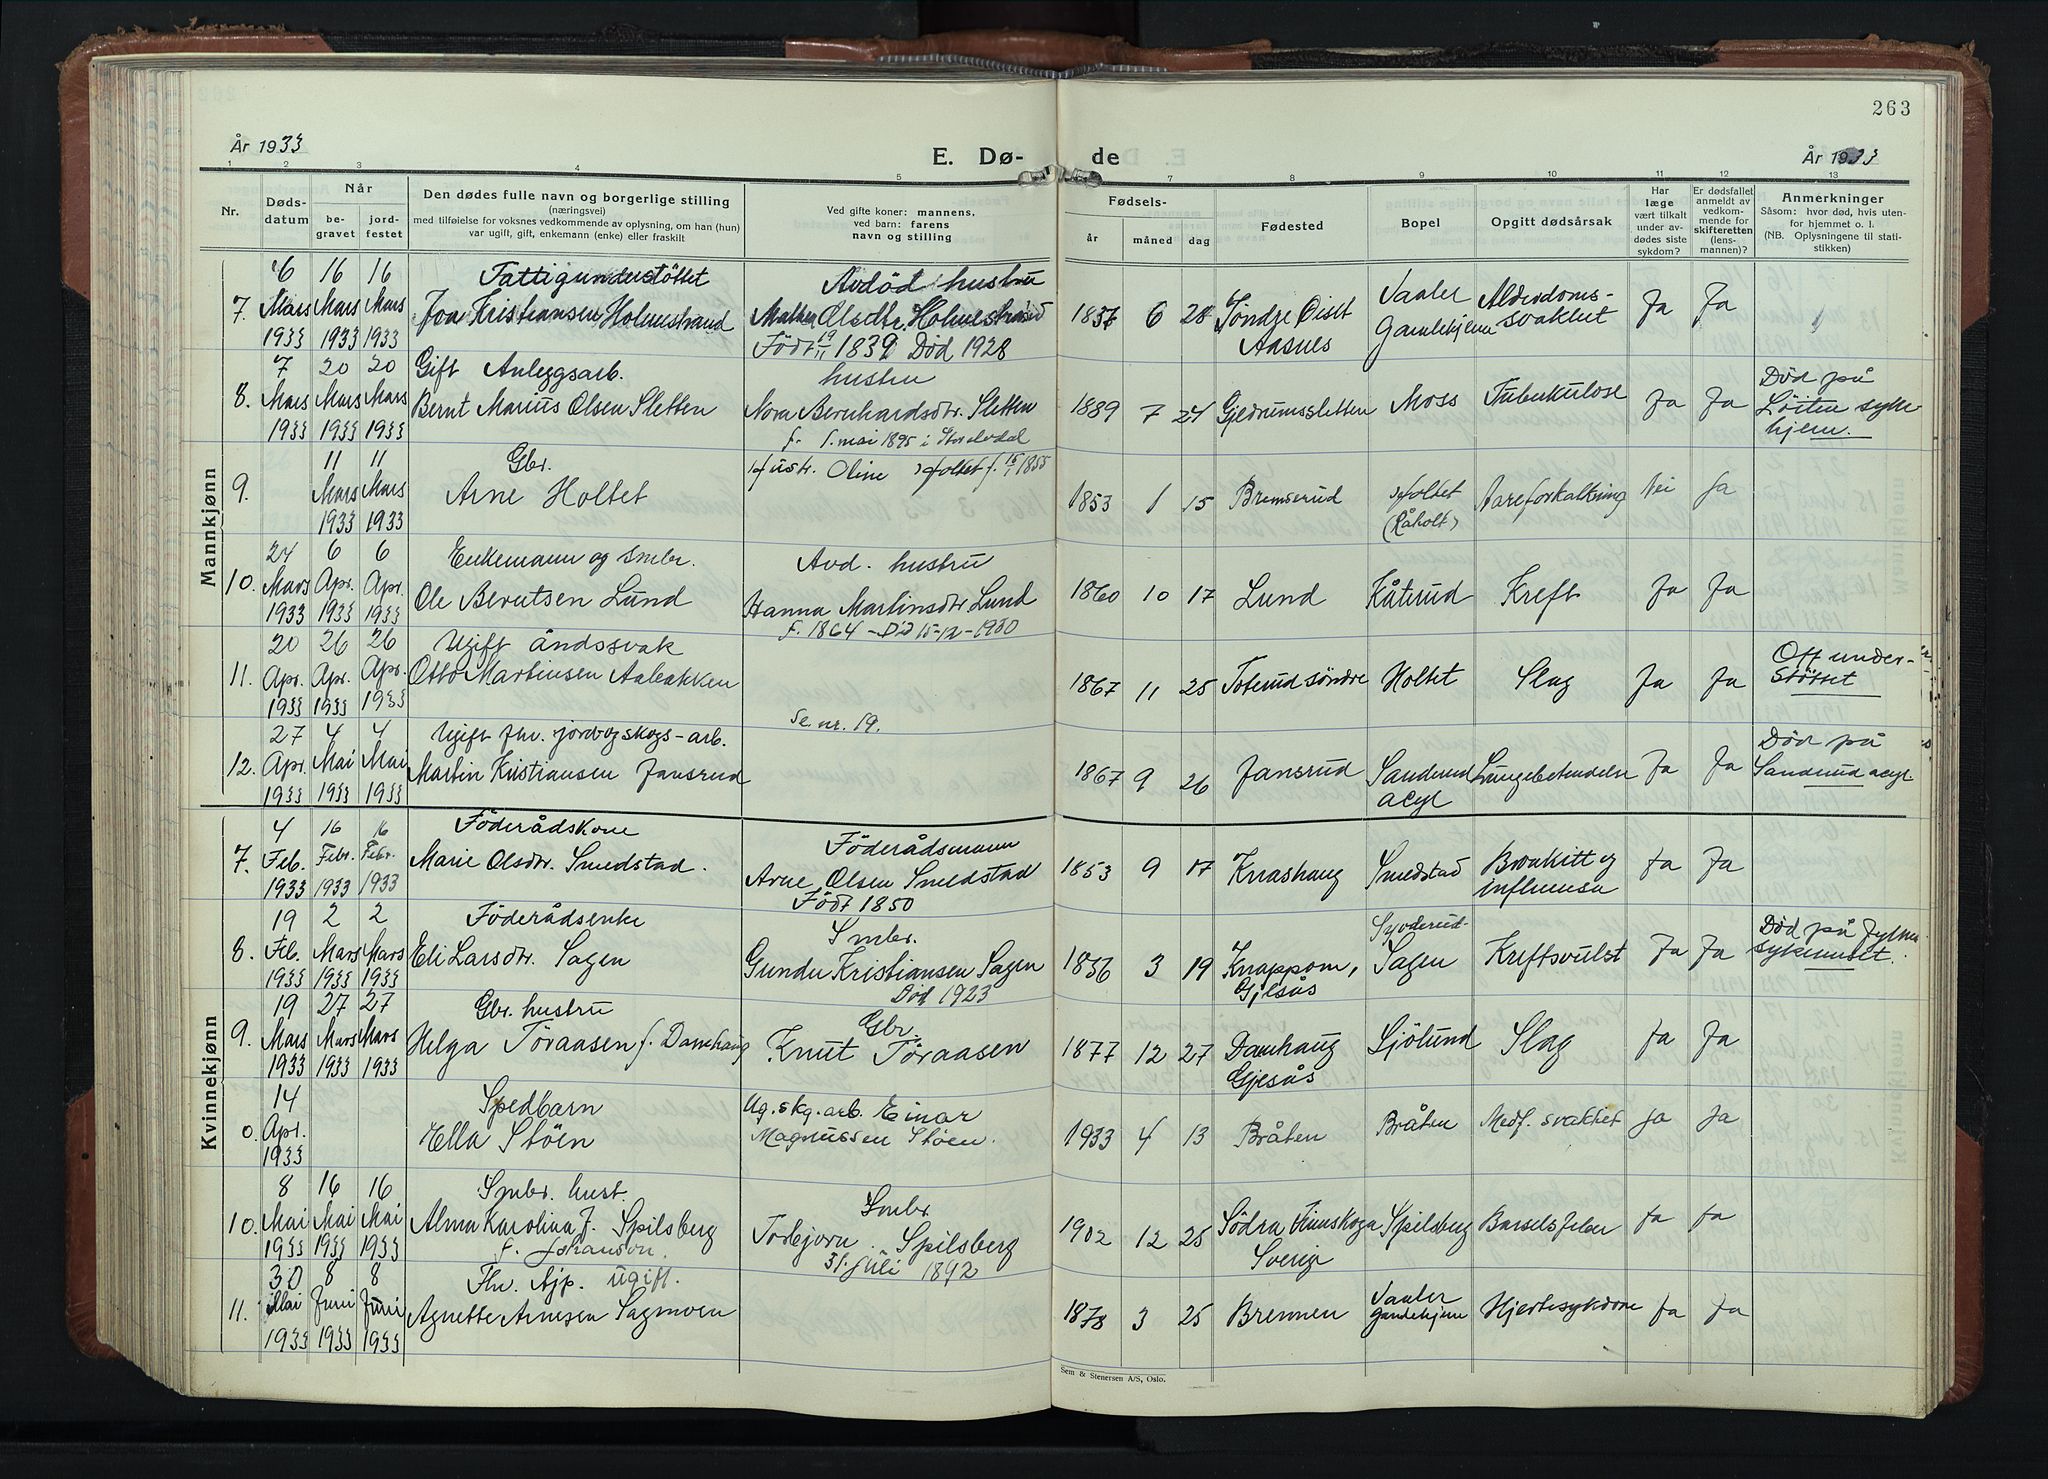 263
År 1933
E. Dø-
de
År 1933
1 2 3 4 5 7 8 9 10 11 12 13
Nr.
Døds-
datum
Når
be-
gravet
jord-
festet
Den dødes fulle navn og borgerlige stilling
(næringsvei)
med tilføielse for voksnes vedkommende av oplysning, om han (hun)
var ugift, gift, enkemann (enke) eller fraskilt
Ved gifte koner: mannens,
ved barn: farens
navn og stilling
Fødsels-
år måned dag
Fødested
Bopel
Opgitt dødsårsak
Har
læge
vært tilkalt
under av-
dødes siste
sykdom?
Er dødsfallet
anmeldt av
vedkom-
mende for
skifteretten
(lens-
mannen)?
Anmerkninger
Såsom: hvor død, hvis uten-
for hjemmet o. l.
(NB. Oplysningene til stati-
stikken)
Mannkjønn
6 16 16 Fattigunderstöttet Avdöd hustru Vaaler Alderdoms-
7. Mars Mars Mars Jon Kristiansen Holmestrand Olsdtr. Holmestrand 1837 6 28 Söndre Öist Gamlehjem svakhet Ja Ja
1933 1933 1933 Född 19/11 1839 Död 1928 Aasnes
7 20 20 Gift Anleggsarb. hustru Död på
8. Mars Mars Mars Bernt Marius Olsen Sletten Nora Bernhardsdtr. Sletten 1889 7 24 Gjedrumssletten Moss Tuberkulose Ja Ja Löiten syke
1933 1933 1933 f. 1. mai 1895 i Storelvdal hjem.
11 11 Gbr. Hustr. Oline Holtet f. 15/1 1855
9. Mars Mars Arne Holtet 1853 1 15 Bremserud Holtet Aareforkalkning Nei Ja
1933 1933 (Råholt)
24 6 6 Enkemann og smbr. Avd. hustru
10. Mars Apr. Apr. Ole Berntsen Lund Hanna Martinsdtr Lund 1860 10 17 Lund Kåterud Kreft Ja Ja
1933 1933 1933 f. 1864 - Död 15-12-1930
20 26 26 Ugift åndssvak Off. under-
11. Apr. Apr. Apr. Otto Martinsen Aabakken 1867 11 25 Toterud söndre Holtet Slag Ja Ja støttet
1933 1933 1933 Se nr. 19.
27 4 4 Ugift fhv. jord og skogs-arb. Död på
12. Apr. Mai Mai Martin Kristiansen Jansrud 1867 9 26 Jansrud Sanderud Lungebetendelse Ja Ja Sandrud acyl.
1933 1933 1933 acyl
Kvinnekjønn
4 16 16 Föderådskone Föderådsmann
7. Feb. Febr. Febr. Marie Olsdtr. Smedstad. Arne Olsen Smedstad 1853 9 17 Knashaug Smedstad Bronkitt og Ja Ja
1933 1933 1933 Född 1850 influensa
19 2 2 Föderådsenke Smbr. Syvderud- Död på Fylke
8. Feb. Mars Mars Eli Larsdtr. Sagen Gunder Kristiansen Sagen 1856 3 19 Knappom, Sagen Kreftsvulst Ja Ja sykehuset.
1933 1933 1933 Död 1923 Gjesås
19 27 27 Gbr. hustru Gbr.
9. Mars Mars Mars Helga Töraasen f. Damhaug Knut Töraasen 1877 12 27 Damhaug Sjölund Slag Ja Ja
1933 1933 1933 Gjesås
14 Spedbarn Ug. skg. arb. Einar
0 Apr. Ella Stöen Magnussen Stöen. 1933 4 13 Bråten Bråten Medf. svakhet Ja Ja
1933
8 16 16 Smbr. hust. Smbr
10. Mai Mai Mai Alma Karolina J. Spilsberg Torbjorn Spilsberg 1902 12 25 Södra Finnskoga Spilsberg Barselsfeber Ja Ja
1933 1933 1933 f. Johanson. 31. juli 1892 Sverige
30 8 8 Fhv. tjp. ugift. Vaaler
11. Mai Juni Juni Agnette Arnesen Sagmoen 1878 3 25 Brennen gamlehjem Hjertesykdom Ja Ja
1933 1933 1933
Sem & Stenersen A/S, Oslo.